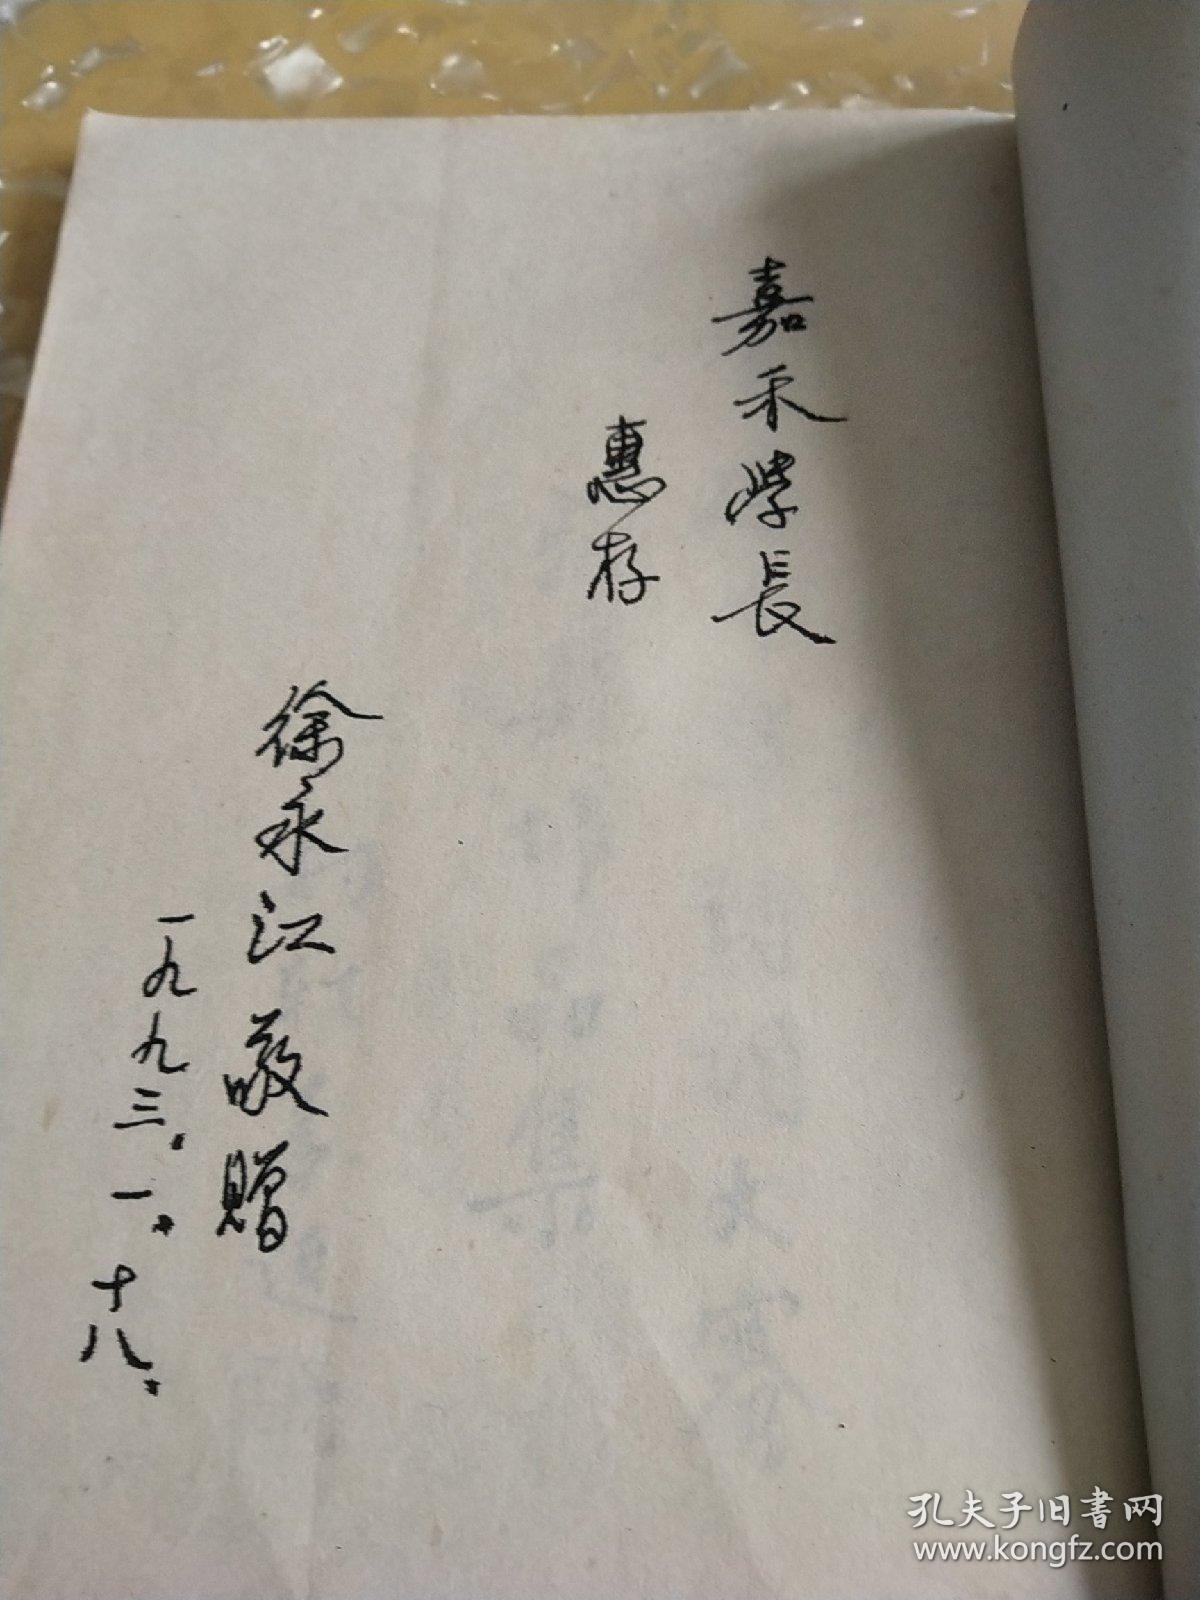 嘉禾學長
惠存
徐永江敬贈
一九九三.一.十八.
孔夫子旧书网
www.kongfz.com